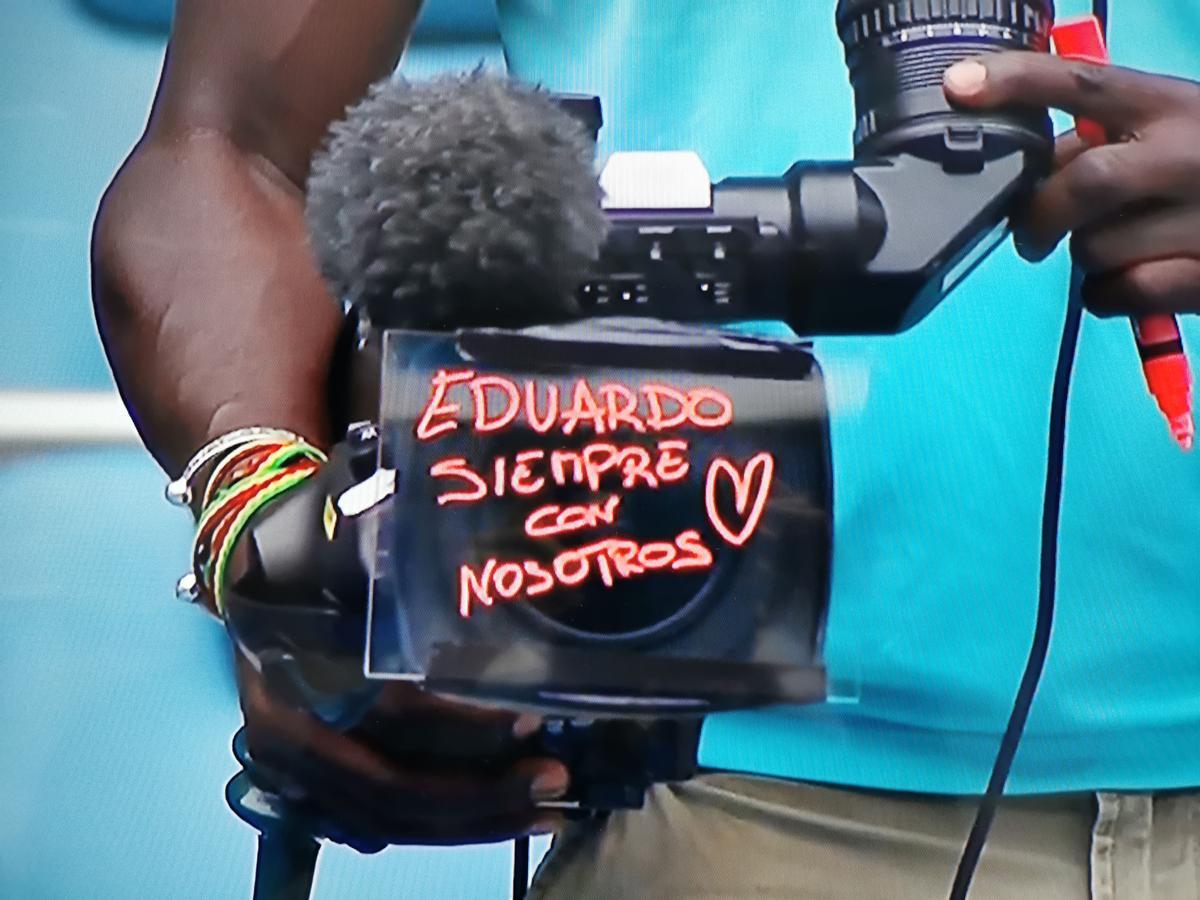 EDUARDO
SIEMPRE
CON
NOSOTROS